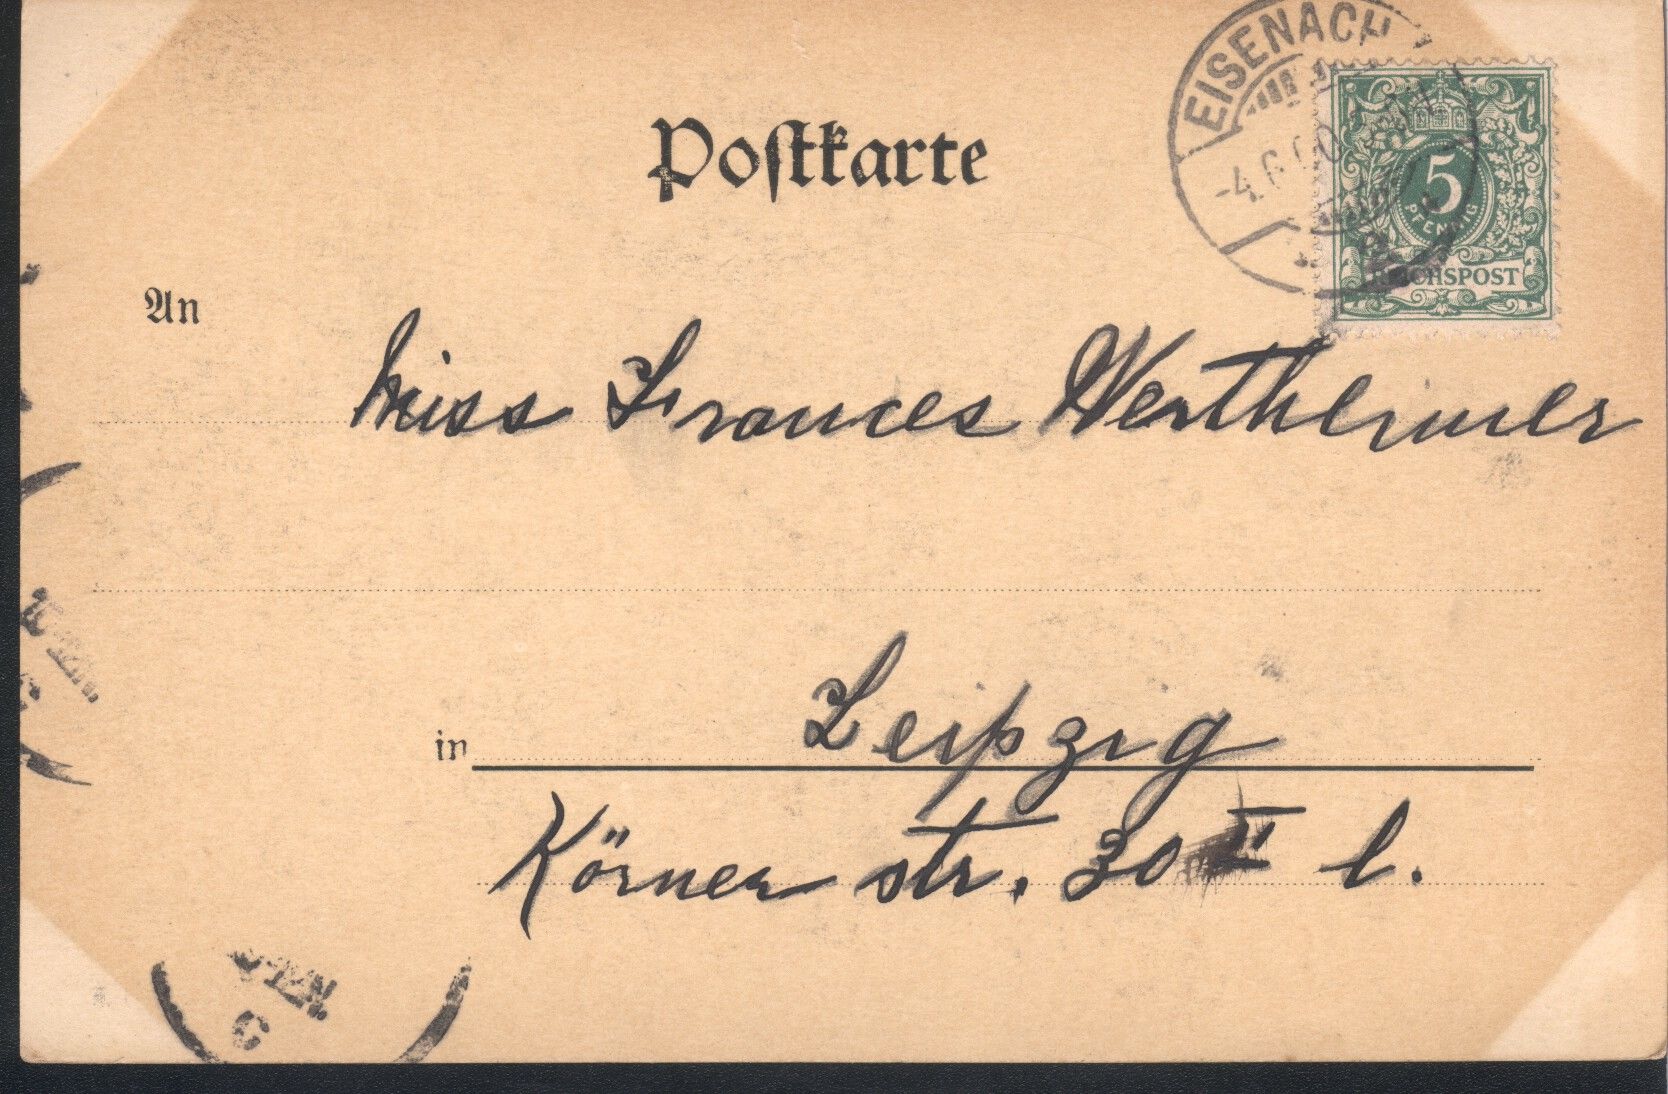 Postkarte
EISENACH
-4.6.00
5
PFENNIG
REICHSPOST
An
Miss Frances Wertheimer
in Leipzig
Körner str. 30 II l.